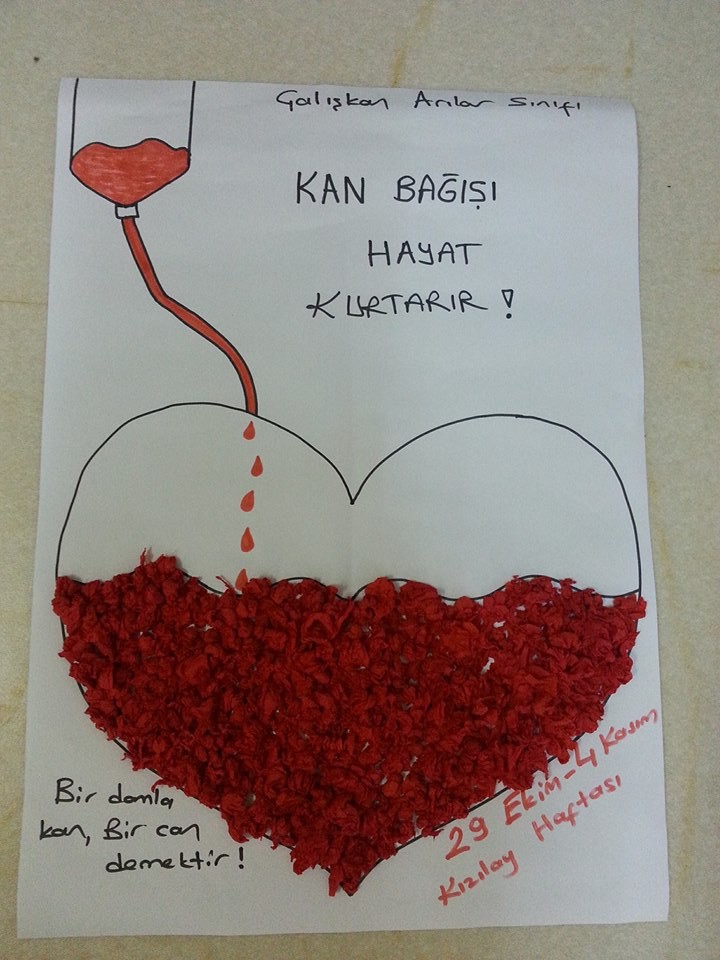 Çalışkan Arılar Sınıfı
KAN BAĞIŞI
HAYAT
KURTARIR !
Bir damla
kan, Bir can
demektir !
29 Ekim-4 Kasım
Kızılay Haftası